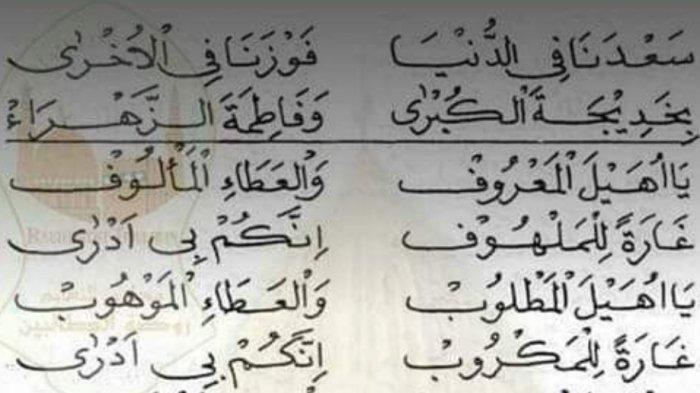 سَعْدَنَا فِي الدُّنْيَا فَوْزَنَا فِي الْاُخْرٰى
بِخَدِيْجَةَ الْكُبْرٰى وَفَاطِمَةَ الزَّهْرَاءْ
يَا اُهَيْلَ الْمَعْرُوْفْ وَالْعَطَاءِ الْمَأْلُوْفْ
غَارَةً لِلْمَلْهُوْفْ اِنَّكُمْ بِي اَدْرٰى
يَا اُهَيْلَ الْمَطْلُوْبْ وَالْعَطَاءِ الْمَوْهُوْبْ
غَارَةً لِلْمَكْرُوْبْ اِنَّكُمْ بِي اَدْرٰى